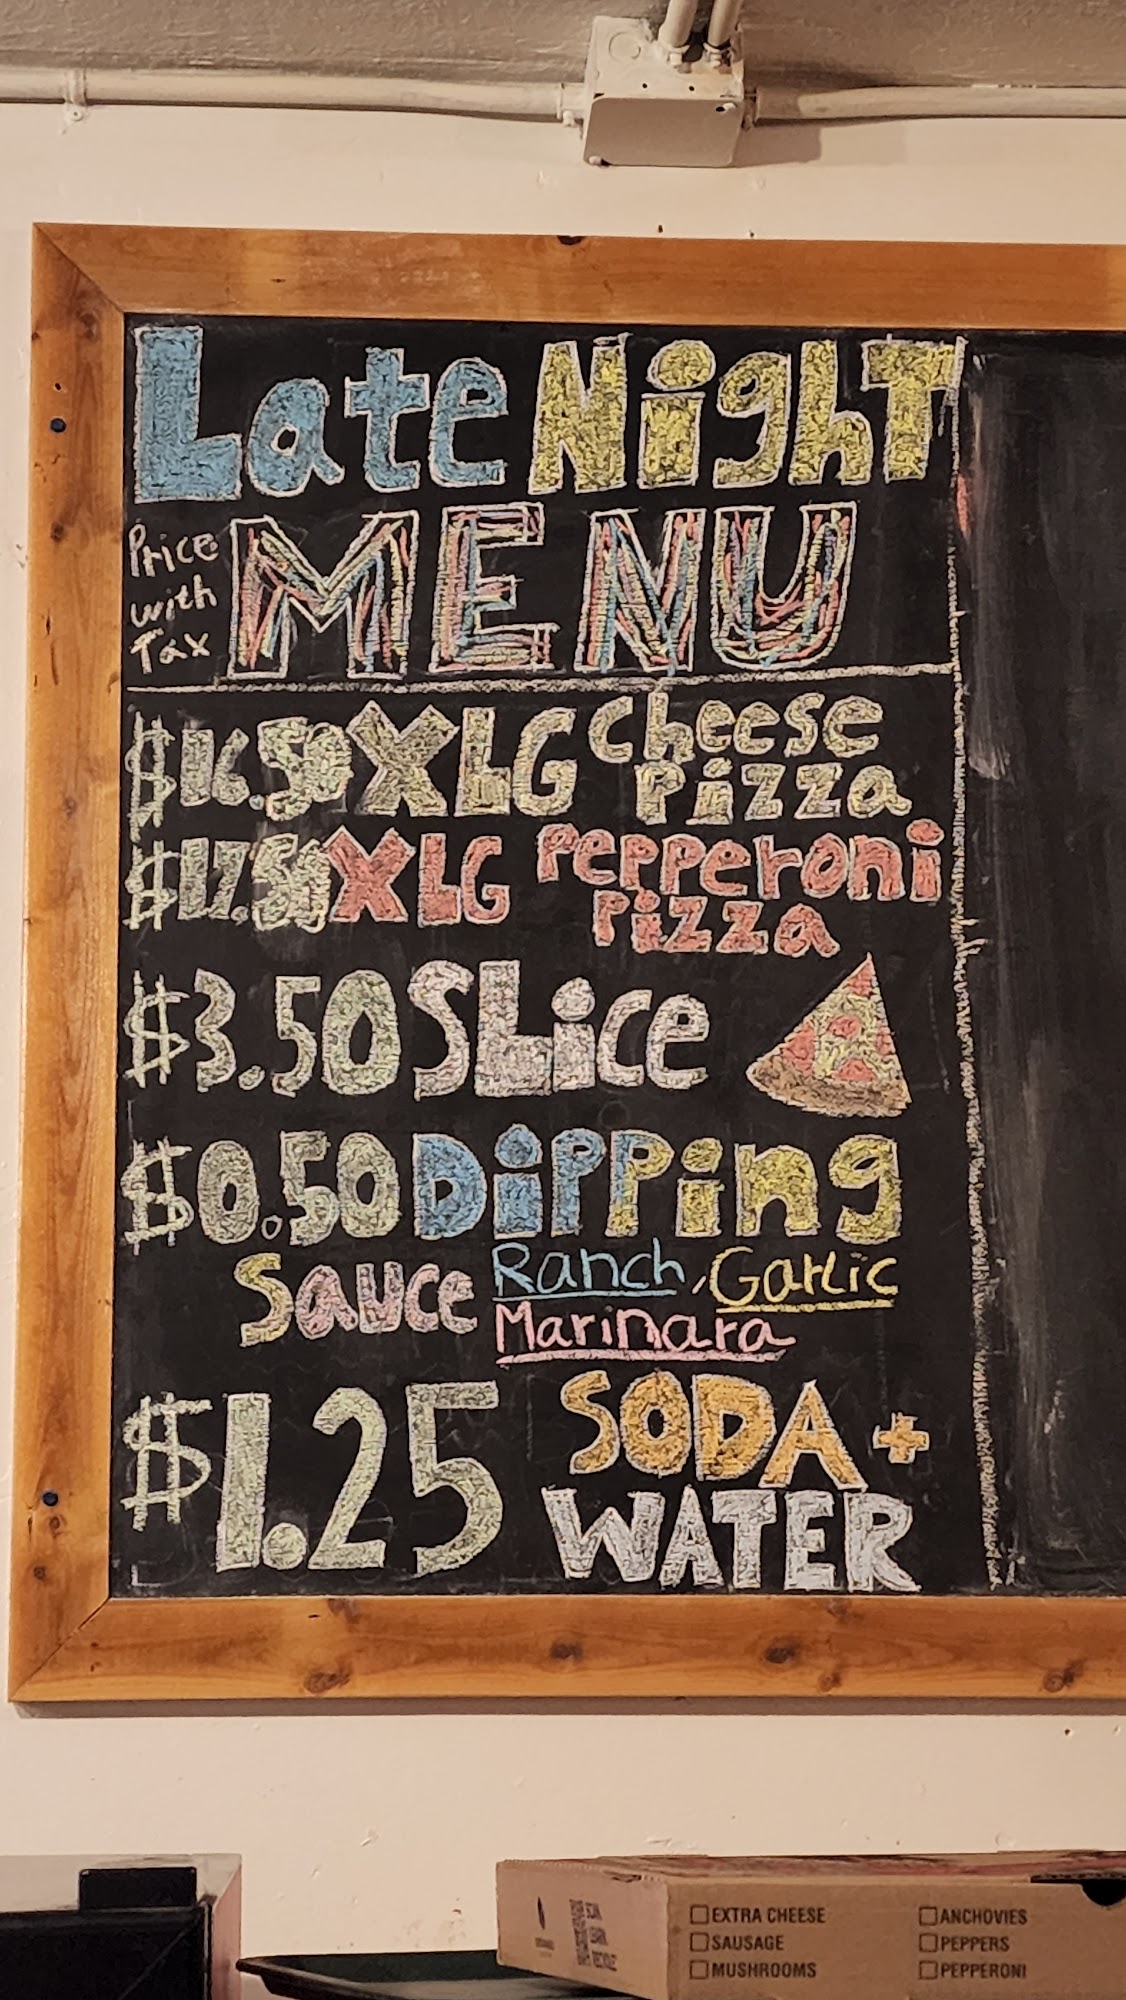 Late Night
Price with Tax
MENU
$16.50 XLG Cheese Pizza
$17.50 XLG Pepperoni Pizza
$3.50 SLice
$0.50 Dipping
Sauce Ranch, Garlic
Marinara
$1.25 SODA +
WATER
SCAN
LEARN
RECYCLE
EXTRA CHEESE
SAUSAGE
MUSHROOMS
ANCHOVIES
PEPPERS
PEPPERONI